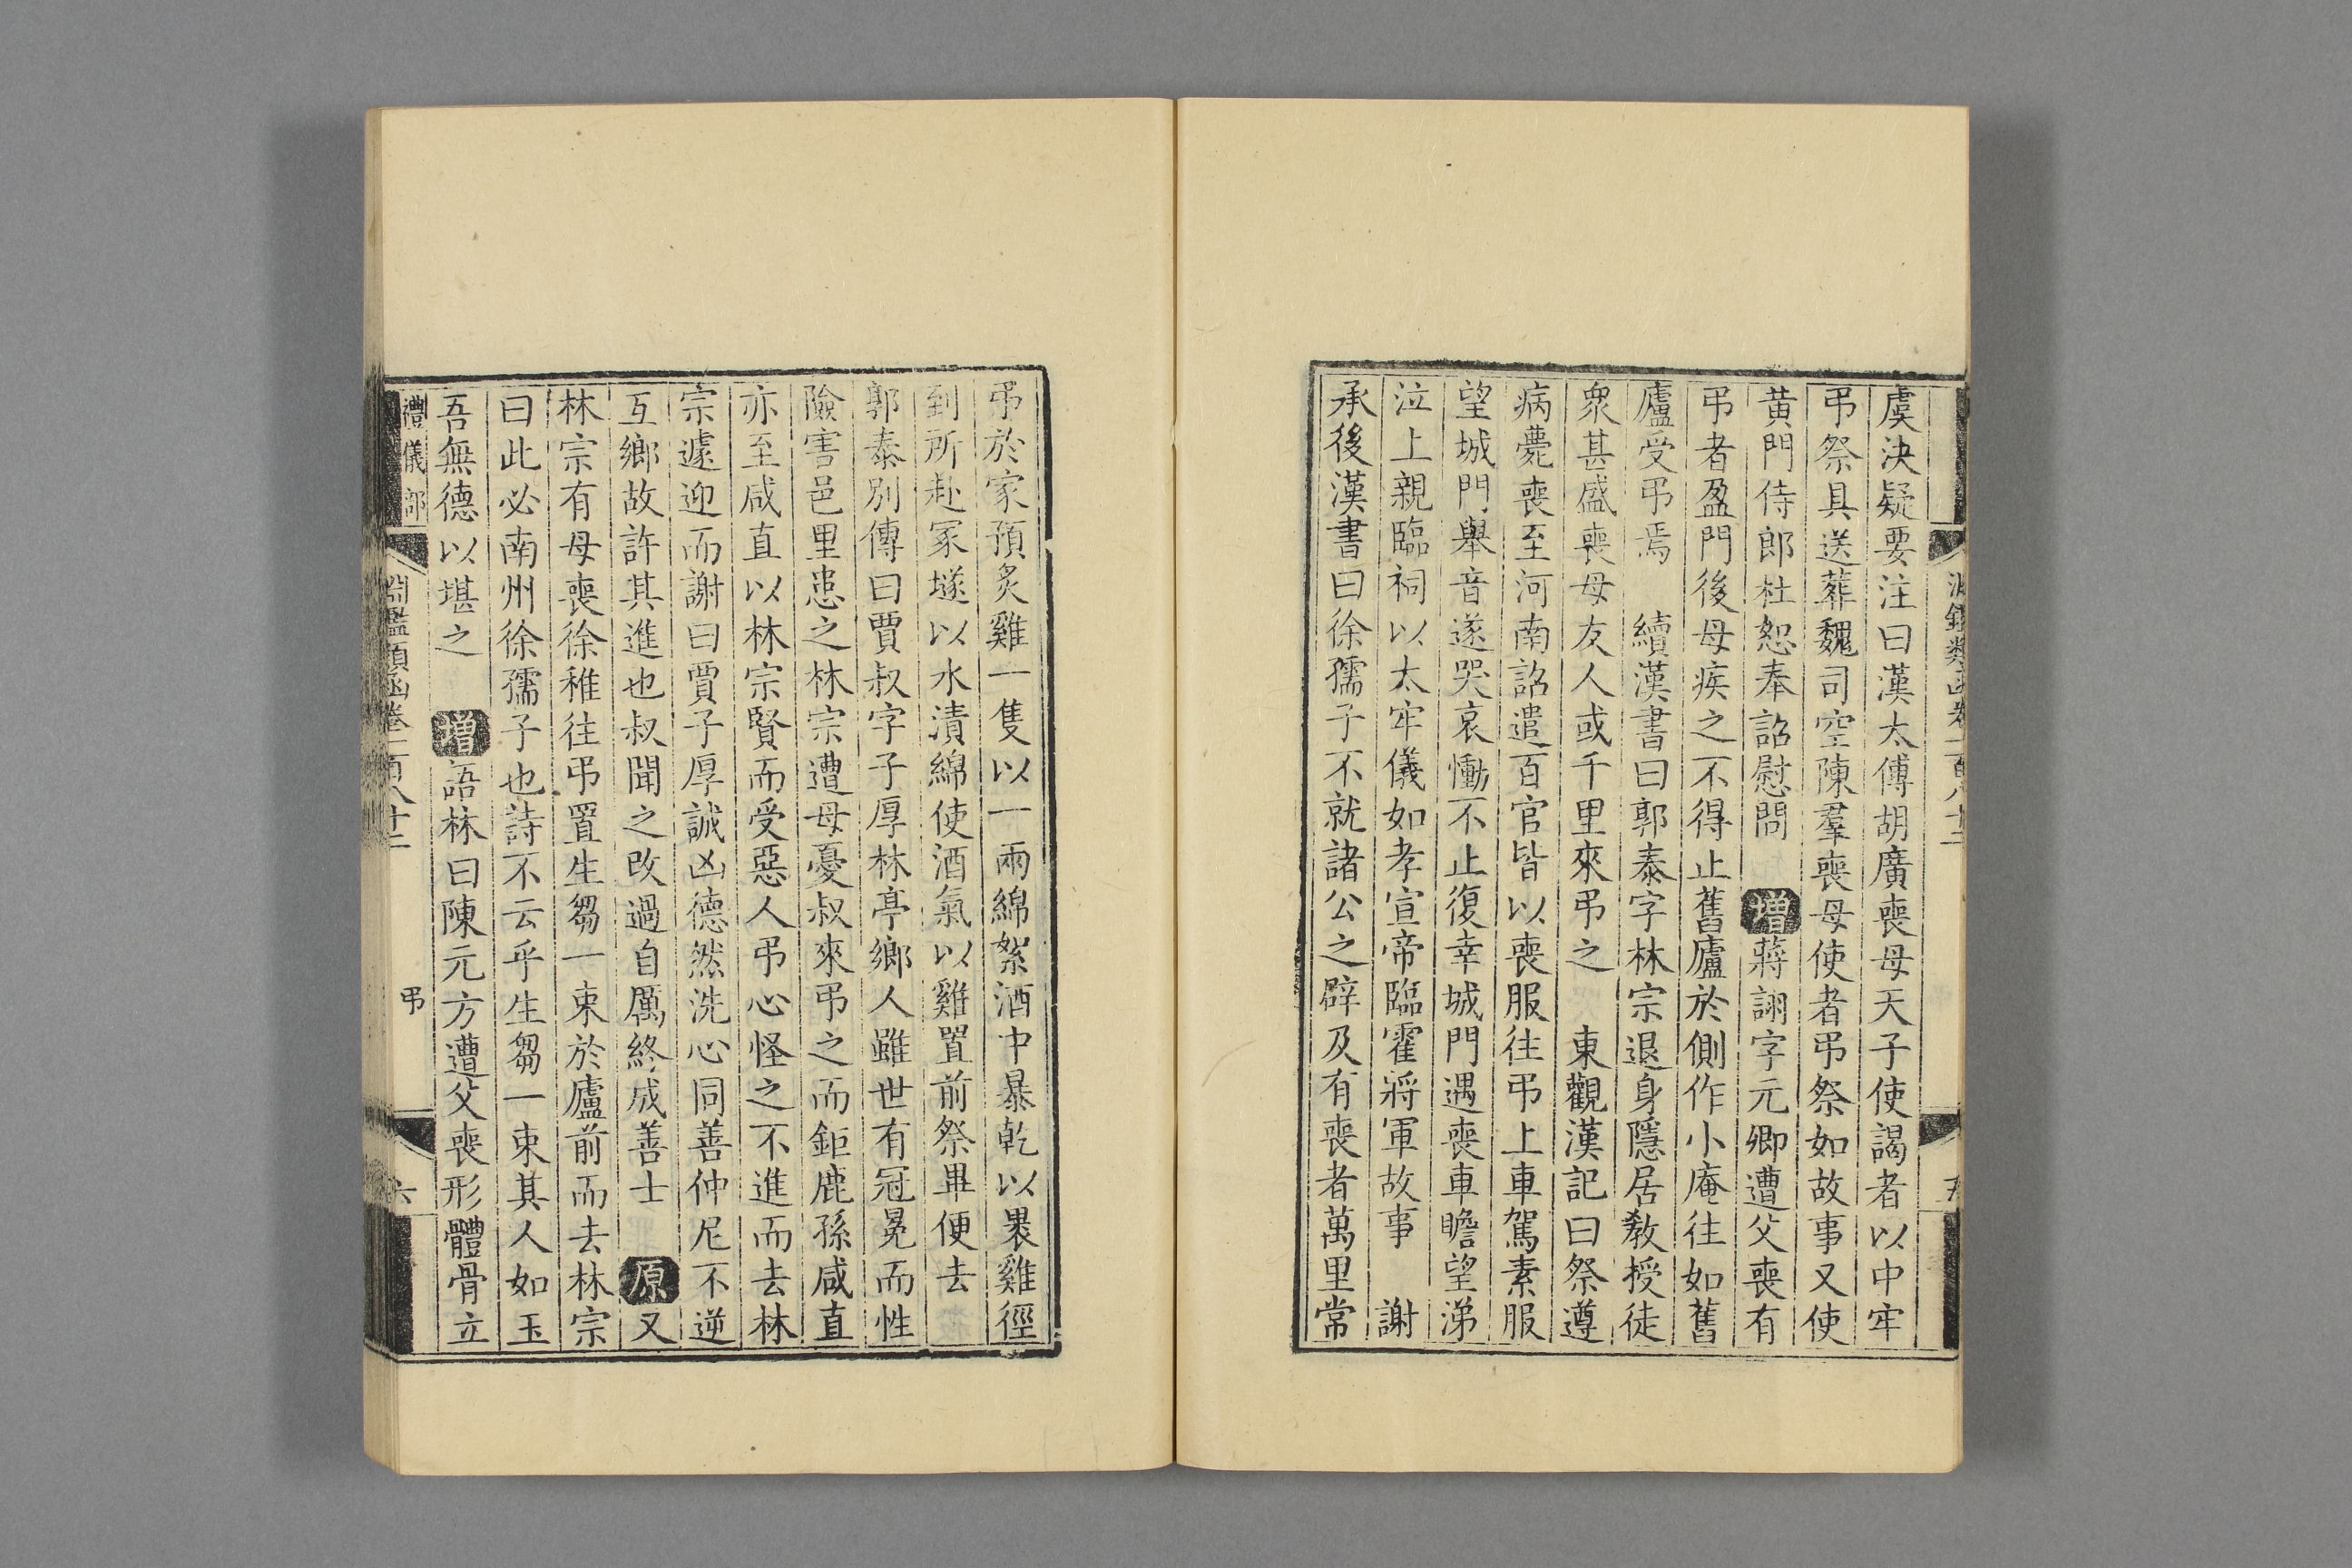 虞決疑要注曰漢太傅胡廣喪母天子使謁者以中牢
弔祭具送葬魏司空陳羣喪母使者弔祭如故事又使
黃門侍郎杜恕奉詔慰問 增蔣詡字元卿遭父喪有
弔者盈門後母疾之不得止舊廬於側作小庵往如舊
廬受弔焉 續漢書曰郭泰字林宗退身隱居敎授徒
衆甚盛喪母友人或千里來弔之 東觀漢記曰祭遵
病薨喪至河南詔遣百官皆以喪服往弔上車駕素服
望城門舉音遂哭哀慟不止復幸城門遇喪車瞻望涕
泣上親臨祠以太牢儀如孝宣帝臨霍將軍故事 謝
承後漢書曰徐孺子不就諸公之辟及有喪者萬里常
弔於家預炙雞一隻以一兩綿絮酒中暴乾以裹雞徑
到所赴冢墜以水漬綿使酒氣以雞置前祭畢便去
郭泰別傳曰賈叔字子厚林亭鄉人雖世有冠冕而性
險害邑里患之林宗遭母憂叔來弔之而鉅鹿孫咸直
亦至咸直以林宗賢而受惡人弔心怪之不進而去林
宗遽迎而謝曰賈子厚誠凶德然洗心同善仲尼不逆
互鄉故許其進也叔聞之改過自厲終成善士 原又
林宗有母喪徐稚往弔置生芻一束於廬前而去林宗
曰此必南州徐孺子也詩不云乎生芻一束其人如玉
吾無德以堪之 增語林曰陳元方遭父喪形體骨立
禮儀部 淵鑑類函卷一百八十二 弔 六